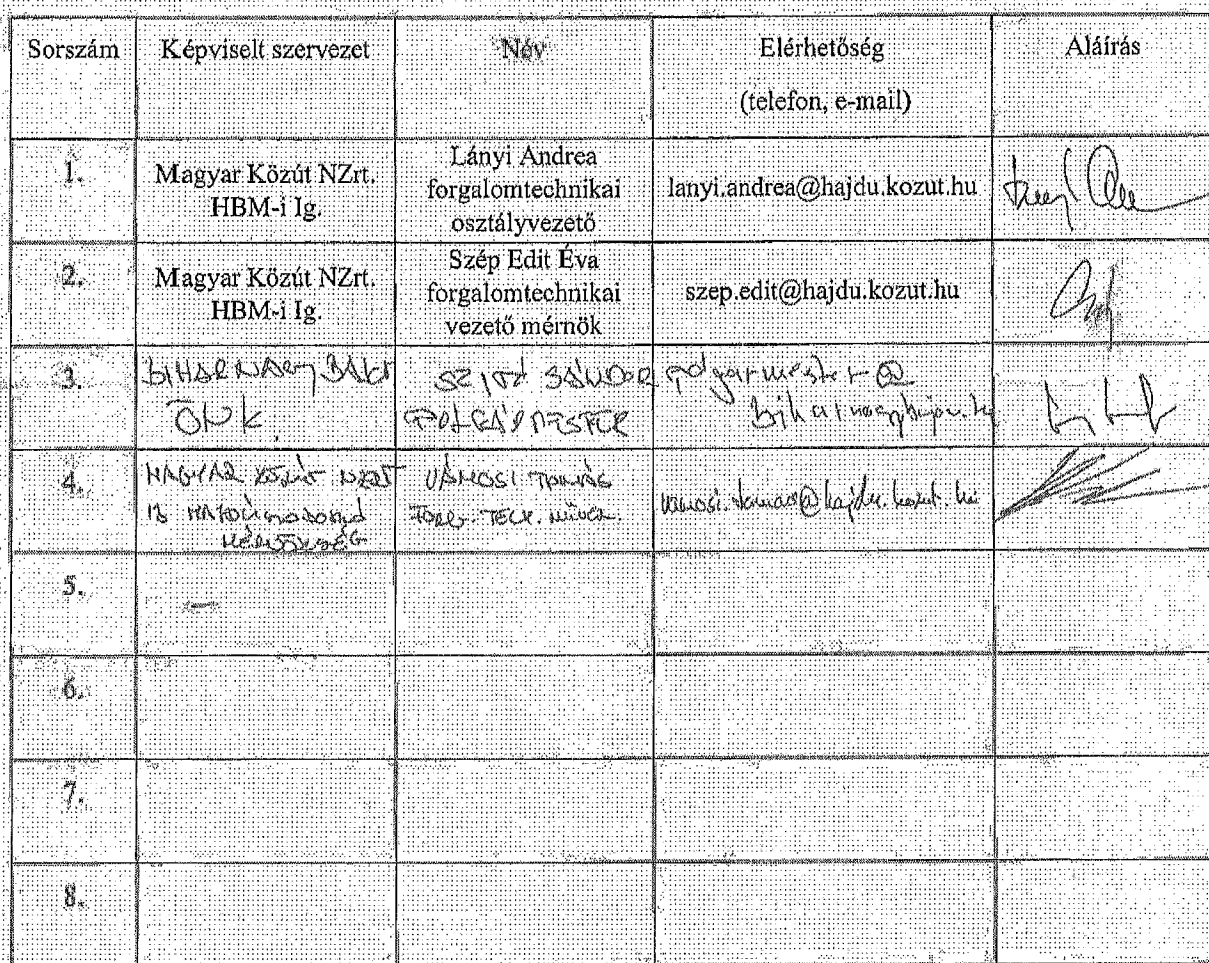 Sorszám
Képviselt szervezet
Név
Elérhetőség
(telefon, e-mail)
Aláírás
1.
Magyar Közút NZrt.
HBM-i Ig.
Lányi Andrea
forgalomtechnikai
osztályvezető
lanyi.andrea@hajdu.kozut.hu
2.
Magyar Közút NZrt.
HBM-i Ig.
Szép Edit Éva
forgalomtechnikai
vezető mérnök
szep.edit@hajdu.kozut.hu
3.
ÖNK.
SÁNDOR
POLGÁRMESTER
polgarmester@
4.
MAGYAR KÖZÚT NZRT
MÉRNÖKSÉG
VÁMOSI TAMÁS
vamosi.tamas@hajdu.kozut.hu
5.
6.
7.
8.